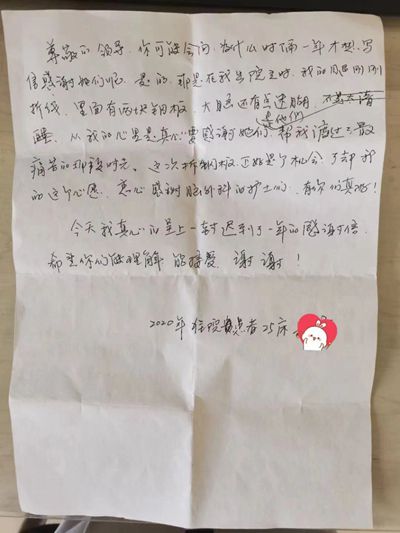 尊敬的领导，你可能会问，为什么时隔一年才想写
信感谢她们呢，是的，那是在我出院之时，我的
拆线，里面有两块钢板，大脑还有点迷糊，不是太清
是他们
醒，从我的心里是真心要感谢她们，帮我渡过了最
痛苦的那段时光。这次拆钢板，正好是个机会，了却我
的这个心愿。衷心感谢脑外科的护士们，有你们真好！
今天我真心的呈上一封迟到了一年的感谢信，
希望你们能理解 能接受，谢谢！
2020年住院患者25床